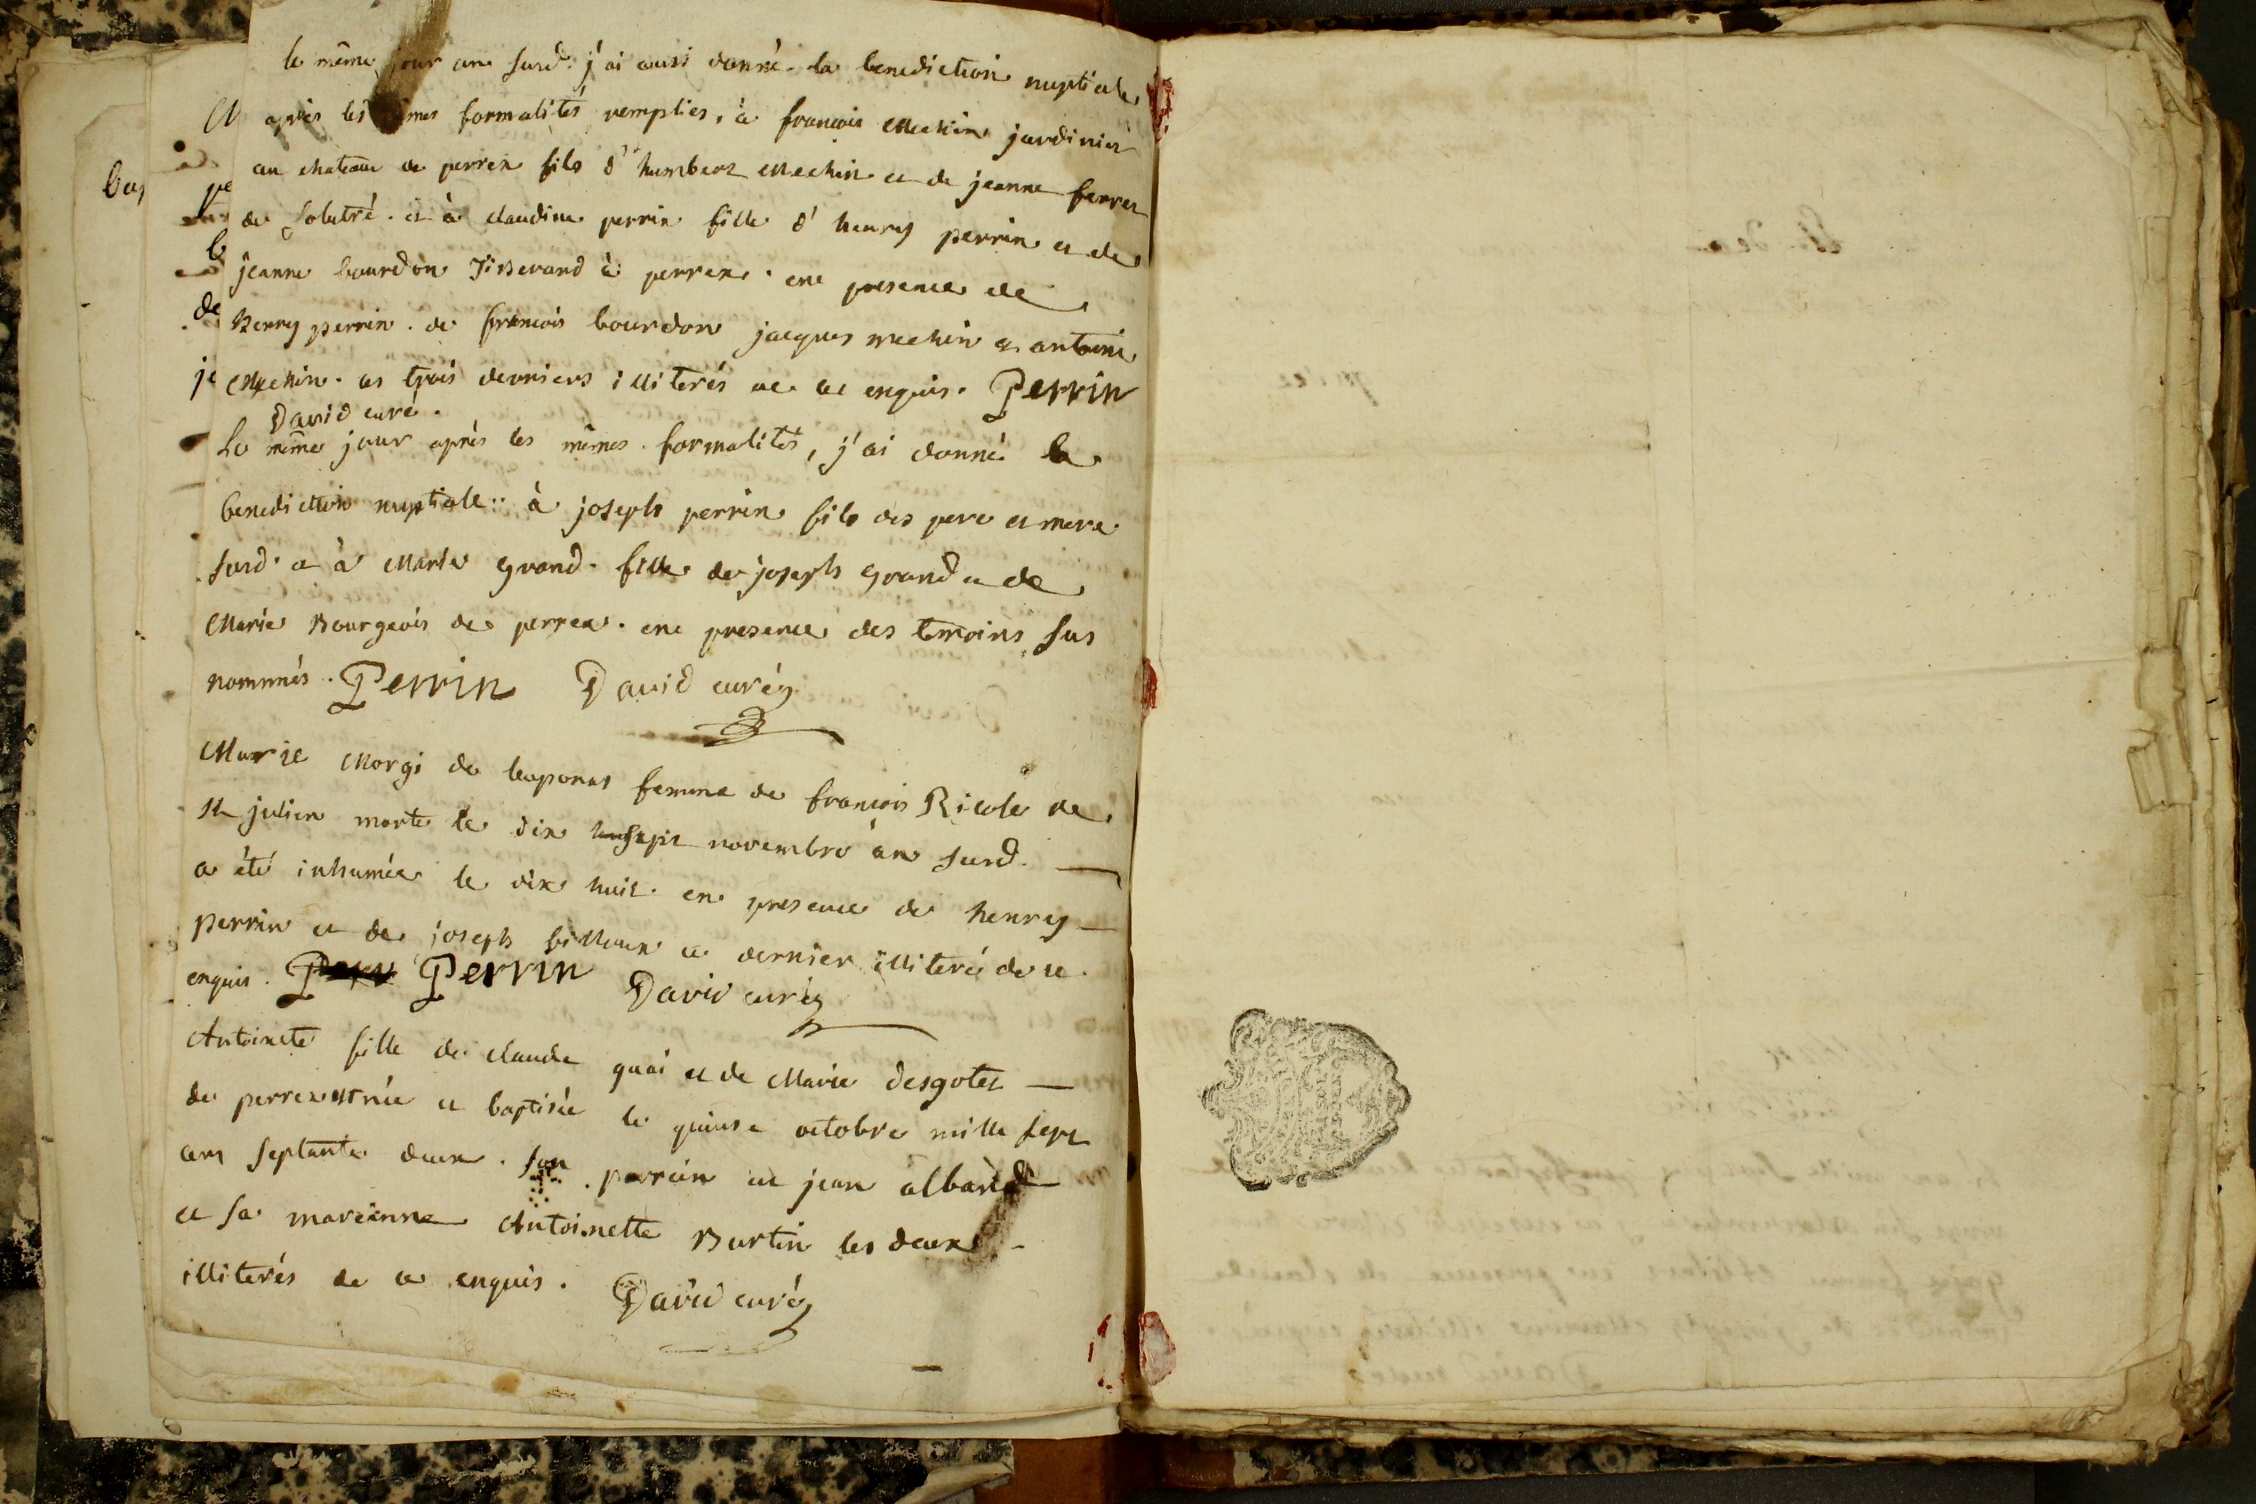 le même jour an susd. j'ai aussi donné la benediction nuptiale
après les mêmes formalités remplies, à francois Mechin jardinier
au chateau de perrex fils d'humbert Mechin et de jeanne ferret
de solutré. et à claudine perrin fille d'henry perrin et de
jeanne bourdon tisserand à perrex. en presence de
henry perrin. de francois bourdon jacques mechin et antoine
Mechin. ces trois derniers illiterés de ce enquis. Perrin
David curé.
Le même jour après les mêmes formalités, j'ai donné la
benediction nuptiale à joseph perrin fils des pere et mere
susd. et à Marie grand. fille de joseph grand et de
Marie Bourgeois de perrex. en presence des temoins sus
nommés. Perrin David curé
Marie Morgi de buponas femme de francois Ricole de
st julien morte le dix sept novembre an susd.
a été inhumée le dix huit. en presence de henrey
perrin et de joseph billoux ce dernier illiteré de ce
enquis. Perrin David curé
Antoinete fille de claude quai et de Marie desgotes
de perrex est née et baptisée le quinse octobre mille sept
cens septante deux. son parrain est jean alband
et sa marienne Antoinette Burtin les deux
illiterés de ce enquis. David curé